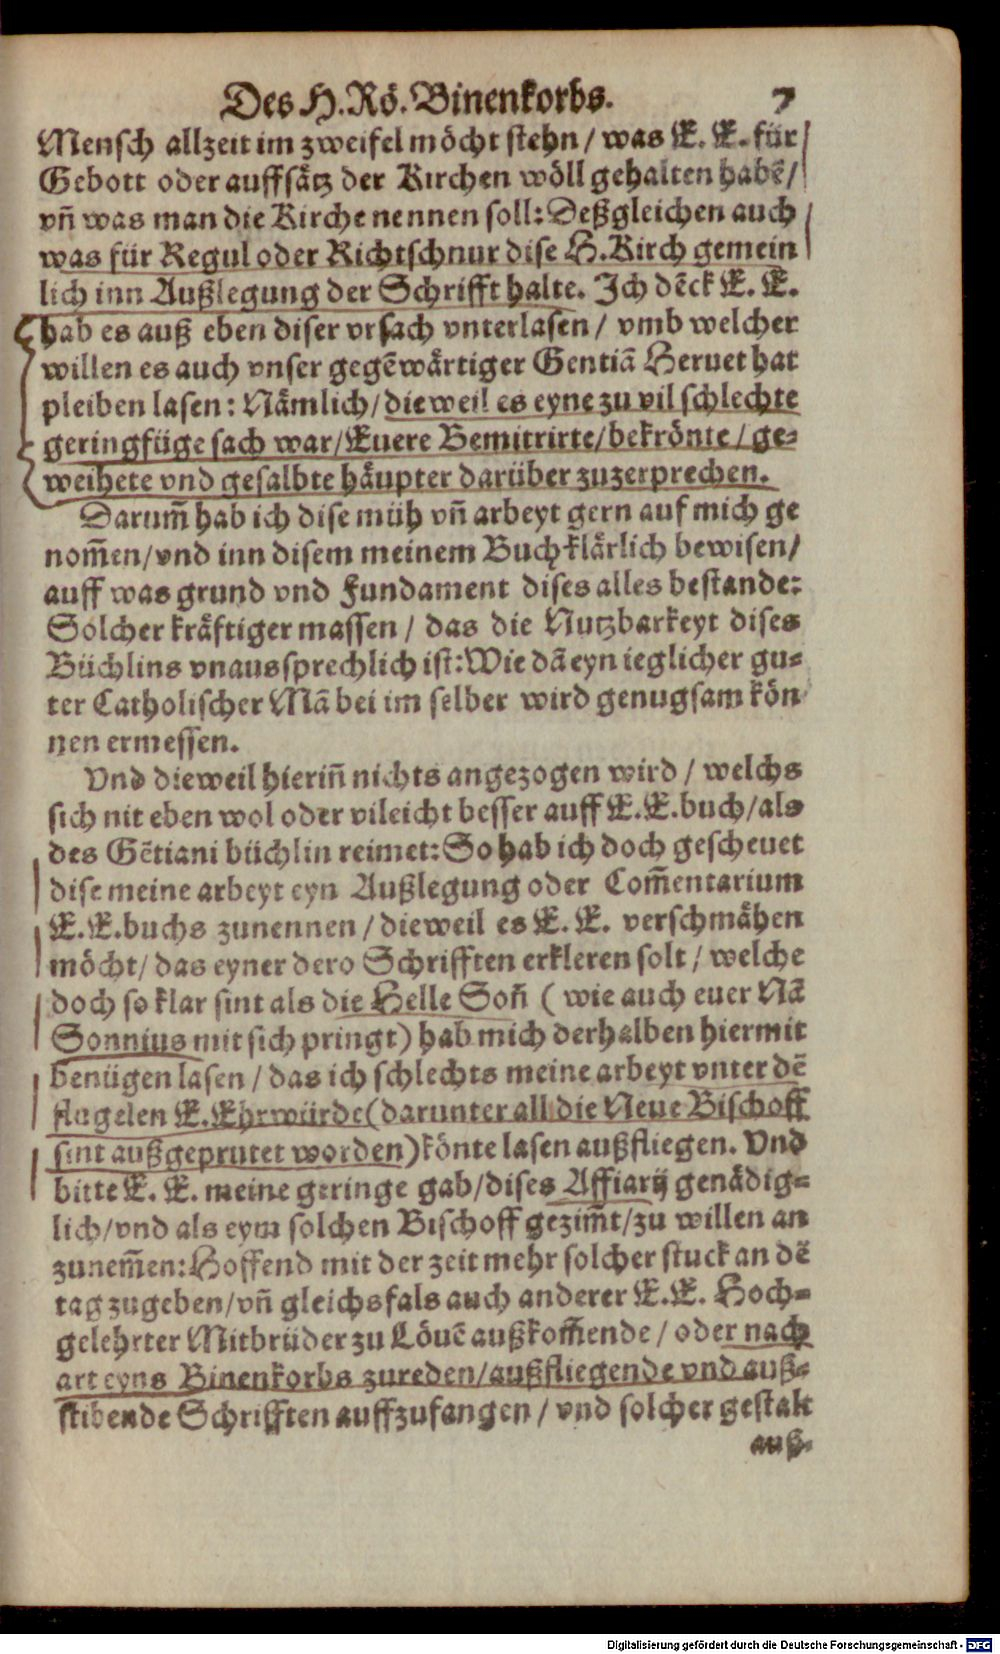 Des H. Rö. Binenkorbs. 7
Mensch allzeit im zweifel möcht stehn / was E. E. für
Gebott oder auffsätz der Kirchen wöll gehalten habē /
vñ was man die Kirche nennen soll: Deßgleichen auch
was für Regul oder Richtschnur dise H. Kirch gemein
lich inn Außlegung der Schrifft halte. Ich dēck E. E.
hab es auß eben diser vrsach vnterlasen / vmb welcher
willen es auch vnser gegēwärtiger Gentiā Hervet hat
pleiben lasen: Nämlich / dieweil es eyne zu vil schlechte
geringfüge sach war / Euere Bemitrirte / bekrönte / ge-
weihete vnd gesalbte häupter darüber zuzerprechen.
Darum̃ hab ich dise müh vñ arbeyt gern auf mich ge
nom̃en / vnd inn disem meinem Buch klärlich bewisen /
auff was grund vnd Fundament dises alles bestande:
Solcher kräftiger massen / das die Nutzbarkeyt dises
Büchlins vnaussprechlich ist: Wie dā eyn ieglicher gu-
ter Catholischer Mā bei im selber wird genugsam kön
nen ermessen.
Vnd dieweil hierin̄ nichts angezogen wird / welchs
sich nit eben wol oder vileicht besser auff E. E. buch / als
des Gētiani büchlin reimet: So hab ich doch geschevet
dise meine arbeyt eyn Außlegung oder Com̃entarium
E. E. buchs zunennen / dieweil es E. E. verschmähen
möcht / das eyner dero Schrifften erkleren solt / welche
doch so klar sint als die Helle Son̄ ( wie auch euer Nā
Sonnius mit sich pringt ) hab mich derhalben hiermit
benügen lasen / das ich schlechts meine arbeyt vnter dē
flugelen E. Ehrwürde ( darunter all die Neue Bischoff
sint außgeprutet worden ) könte lasen außfliegen. Vnd
bitte E. E. meine geringe gab / dises Affiarij genädig-
lich / vnd als eym solchen Bischoff gezim̃t / zu willen an
zunem̃en: Hoffend mit der zeit mehr solcher stuck an dē
tag zugeben / vñ gleichsfals auch anderer E. E. Hoch-
gelehrter Mitbrüder zu Lövē außkom̃ende / oder nach
art eyns Binenkorbs zureden / außfliegende vnd auß-
stibende Schrifften auffzufangen / vnd solcher gestalt
auß-
Digitalisierung gefördert durch die Deutsche Forschungsgemeinschaft - DFG